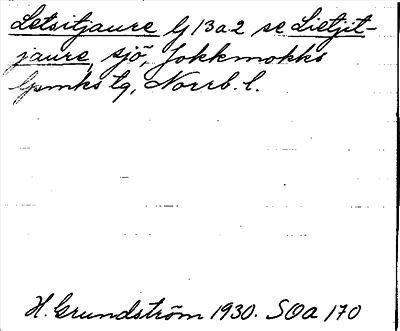 Letsitjaure bj 13a2 se Lietjit-
jaure, sjö, Jokkmokks
lpmks tg, Norrb. l.
H. Grundström 1930. SOa 170